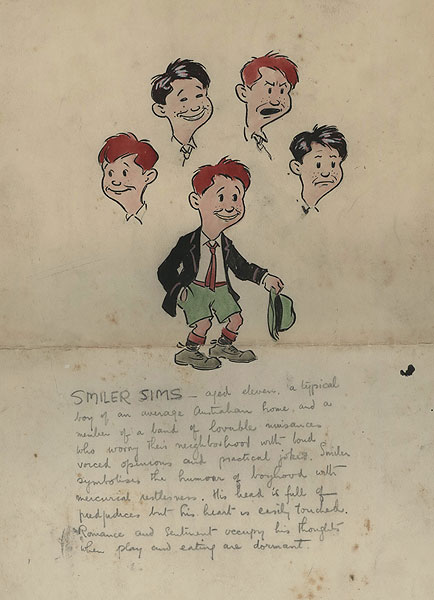 SMILER SIMS – aged eleven, a typical
boy of an average Australian home, and a
member of a band of lovable nuisances
who worry their neighborhood with loud
voiced opinions and practical jokes. Smiler
symbolises the humour of boyhood with
mercurial restlessness. His head is full of
predjudices but his heart is easily touched.
Romance and sentiment occupy his thoughts
when play and eating are dormant.